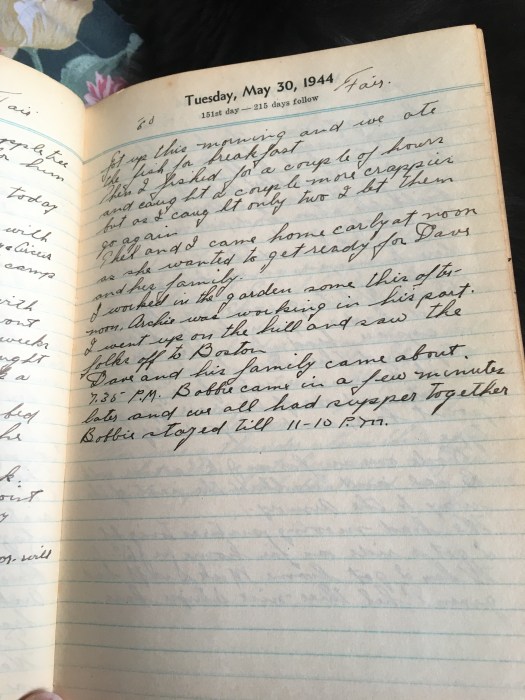 Tuesday, May 30, 1944
Fair.
151st day — 215 days follow
Got up this morning and we ate
the fish for breakfast
Then I fished for a couple of hours
and caught a couple more crappies
but as I caught only two I let them
go again
Ethel and I came home early at noon
as she wanted to get ready for Dave
and his family.
I worked in the garden some this after-
noon. Archie was working in his part.
I went up on the hill and saw the
folks off to Boston
Dave and his family came about.
7.35 P.M. Bobbie came in a few minutes
later and we all had supper together
Bobbie stayed till 11-10 P.M.
today
with
camp
with
bed
will